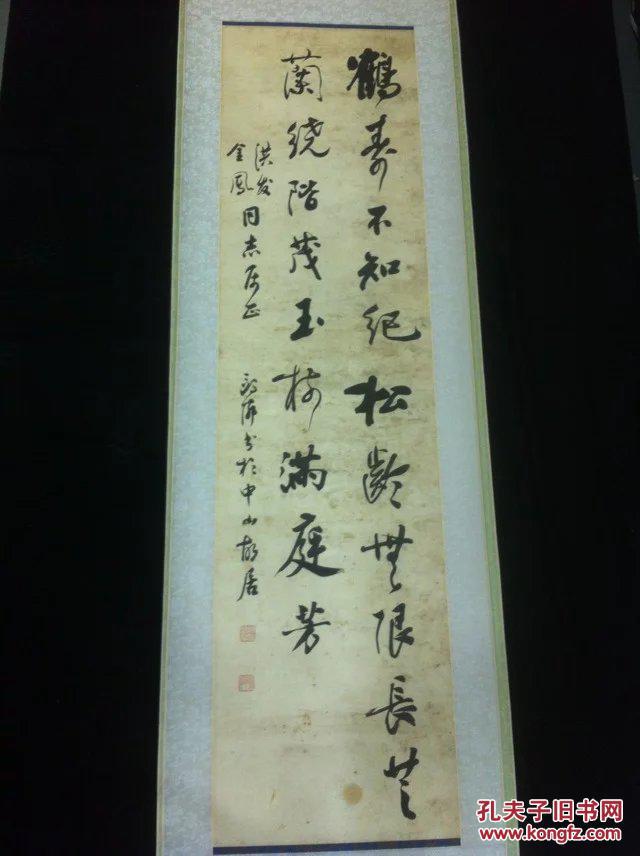 鶴寿不知紀松齡無限長芝
蘭繞階茂玉樹滿庭芳
洪发
金鳳
同志属正
书於中山故居
孔夫子旧书网
www.kongfz.com